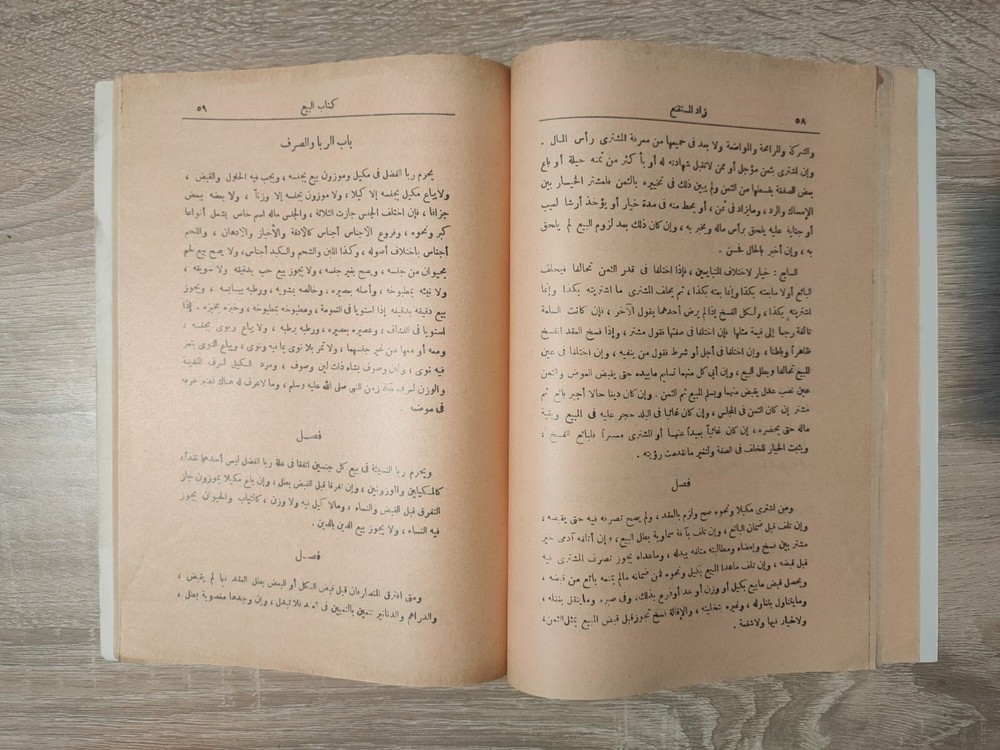 ٥٨
زاد المستقنع
والشركة والمرابحة والمواضعة ولا بد فى جميعها من معرفة المشترى رأس المال .
وإن اشترى بثمن مؤجل أو ممن لا تقبل شهادته له أو بأكثر من ثمنه حيلة أو باع
بعض الصفقة بقسطها من الثمن ولم يبين ذلك فى تخبيره بالثمن فلمشتر الخيار بين
الإمساك والرد ، ومايزاد فى ثمن ، أو يحط منه فى مدة خيار أو يؤخذ أرشا لعيب
أو جناية عليه يلحق برأس ماله ويخبر به ، وإن كان ذلك بعد لزوم البيع لم يلحق
به ، وإن أخبر بالحال فحسن .
السابع : خيار لاختلاف المتبايعين ، فإذا اختلفا فى قدر الثمن تحالفا فيحلف
البائع أولا مابعته بكذا وإنما بعته بكذا ، ثم يحلف المشترى ما اشتريته بكذا وإنما
اشتريته بكذا ، ولكل الفسخ إذا لم يرض أحدهما بقول الآخر ، فإن كانت السلعة
تالفة رجعا إلى قيمة مثلها فإن اختلفا فى صفتها فقول مشتر ، وإذا فسخ العقد انفسخ
ظاهراً وباطنا ، وإن اختلفا فى أجل أو شرط فقول من ينفيه ، وإن اختلفا فى عين
المبيع تحالفا وبطل البيع ، وإن أبى كل منهما تسليم مابيده حتى يقبض العوض والثمن
عين نصب عدل يقبض منهما ويسلم المبيع ثم الثمن . وإن كان دينا حالا أجبر بائع ثم
مشتر إن كان الثمن فى المجلس ، وإن كان غائبا فى البلد حجر عليه فى المبيع وبقية
ماله حتى يحضره ، إن كان غائباً بعيداً عنها أو المشترى معسراً فللبائع الفسخ ،
ويثبت الخيار للخلف فى الصفة ولتغير ماتقدمت رؤيته .
فصل
ومن اشترى مكيلا ونحوه صح ولزم بالعقد ، ولم يصح تصرفه فيه حتى يقبضه ،
وإن تلف قبل فمن ضمان البائع ، وإن تلف بآفة سماوية بطل البيع ، وإن أتلفه آدمى خير
مشتر بين فسخ وإمضاء ومطالبة متلفه ببدله ، وماعداه يجوز تصرف المشترى فيه
قبل قبضه ، وإن تلف ماعدا المبيع بكيل ونحوه فمن ضمانه مالم يمنعه بائع من قبضه ،
ويحصل قبض مابيع بكيل أو وزن أو عد أو ذرع بذلك ، وفى صبرة وماينقل بنقله ،
ومايتناول بتناوله ، وغيره بتخليته ، والإقالة فسخ تجوز قبل قبض المبيع بمثل الثمن ،
ولا خيار فيها ولا شفعة .
كتاب البيع
٥٩
باب الربا والصرف
يحرم ربا الفضل فى مكيل وموزون بيع بجنسه ، ويجب فيه الحلول والقبض ،
ولا يباع مكيل بجنسه إلا كيلا ، ولا موزون بجنسه إلا وزناً ، ولا بعضه ببعض
جزافا ، فإن اختلف الجنس جازت الثلاثة ، والجنس ماله اسم خاص يشمل أنواعا
كبر ونحوه ، وفروع الأجناس أجناس كالأدقة والأخباز والأدهان ، واللحم
أجناس باختلاف أصوله ، وكذا اللبن والشحم والكبد أجناس ، ولا يصح بيع لحم
بحيوان من جنسه ، ويصح بغير جنسه ، ولا يجوز بيع حب بدقيقه ولا سويقه ،
ولا نيئه بمطبوخه ، وأصله بعصيره ، وخالصه بمشوبه ، ورطبه بيابسه ، ويجوز
بيع دقيقه بدقيقه إذا استويا فى النعومة ، ومطبوخه بمطبوخه ، وخبزه بخبزه . إذا
استويا فى النشاف ، وعصيره بعصيره ، ورطبه برطبه ، ولا يباع ربوى بجنسه ،
ومعه أو معها من غير جنسهما ، ولا تمر بلا نوى بما فيه نوى ، ويباع النوى بتمر
فيه نوى ، ولبن وصوف بشاة ذات لبن وصوف ، ومرد الكيل لعرف المدينة
والوزن لعرف مكة زمن النبى صلى الله عليه وسلم ، وما لا عرف له هناك اعتبر عرفه
فى موضعه .
فصل
ويحرم ربا النسيئة فى بيع كل جنسين اتفقا فى علة ربا الفضل ليس أحدهما نقداً ،
كالمكيلين والموزونين ، وإن تفرقا قبل القبض بطل ، وإن باع مكيلا بموزون جاز
التفرق قبل القبض والنساء ، ومالا كيل فيه ولا وزن ، كالثياب والحيوان يجوز
فيه النساء ، ولا يجوز بيع الدين بالدين .
فصل
ومتى افترق المتصارفان قبل قبض الكل أو البعض بطل العقد فيما لم يقبض ،
والدراهم والدنانير تتعين بالتعيين فى العقد فلا تبدل ، وإن وجدها مغصوبة بطل ،